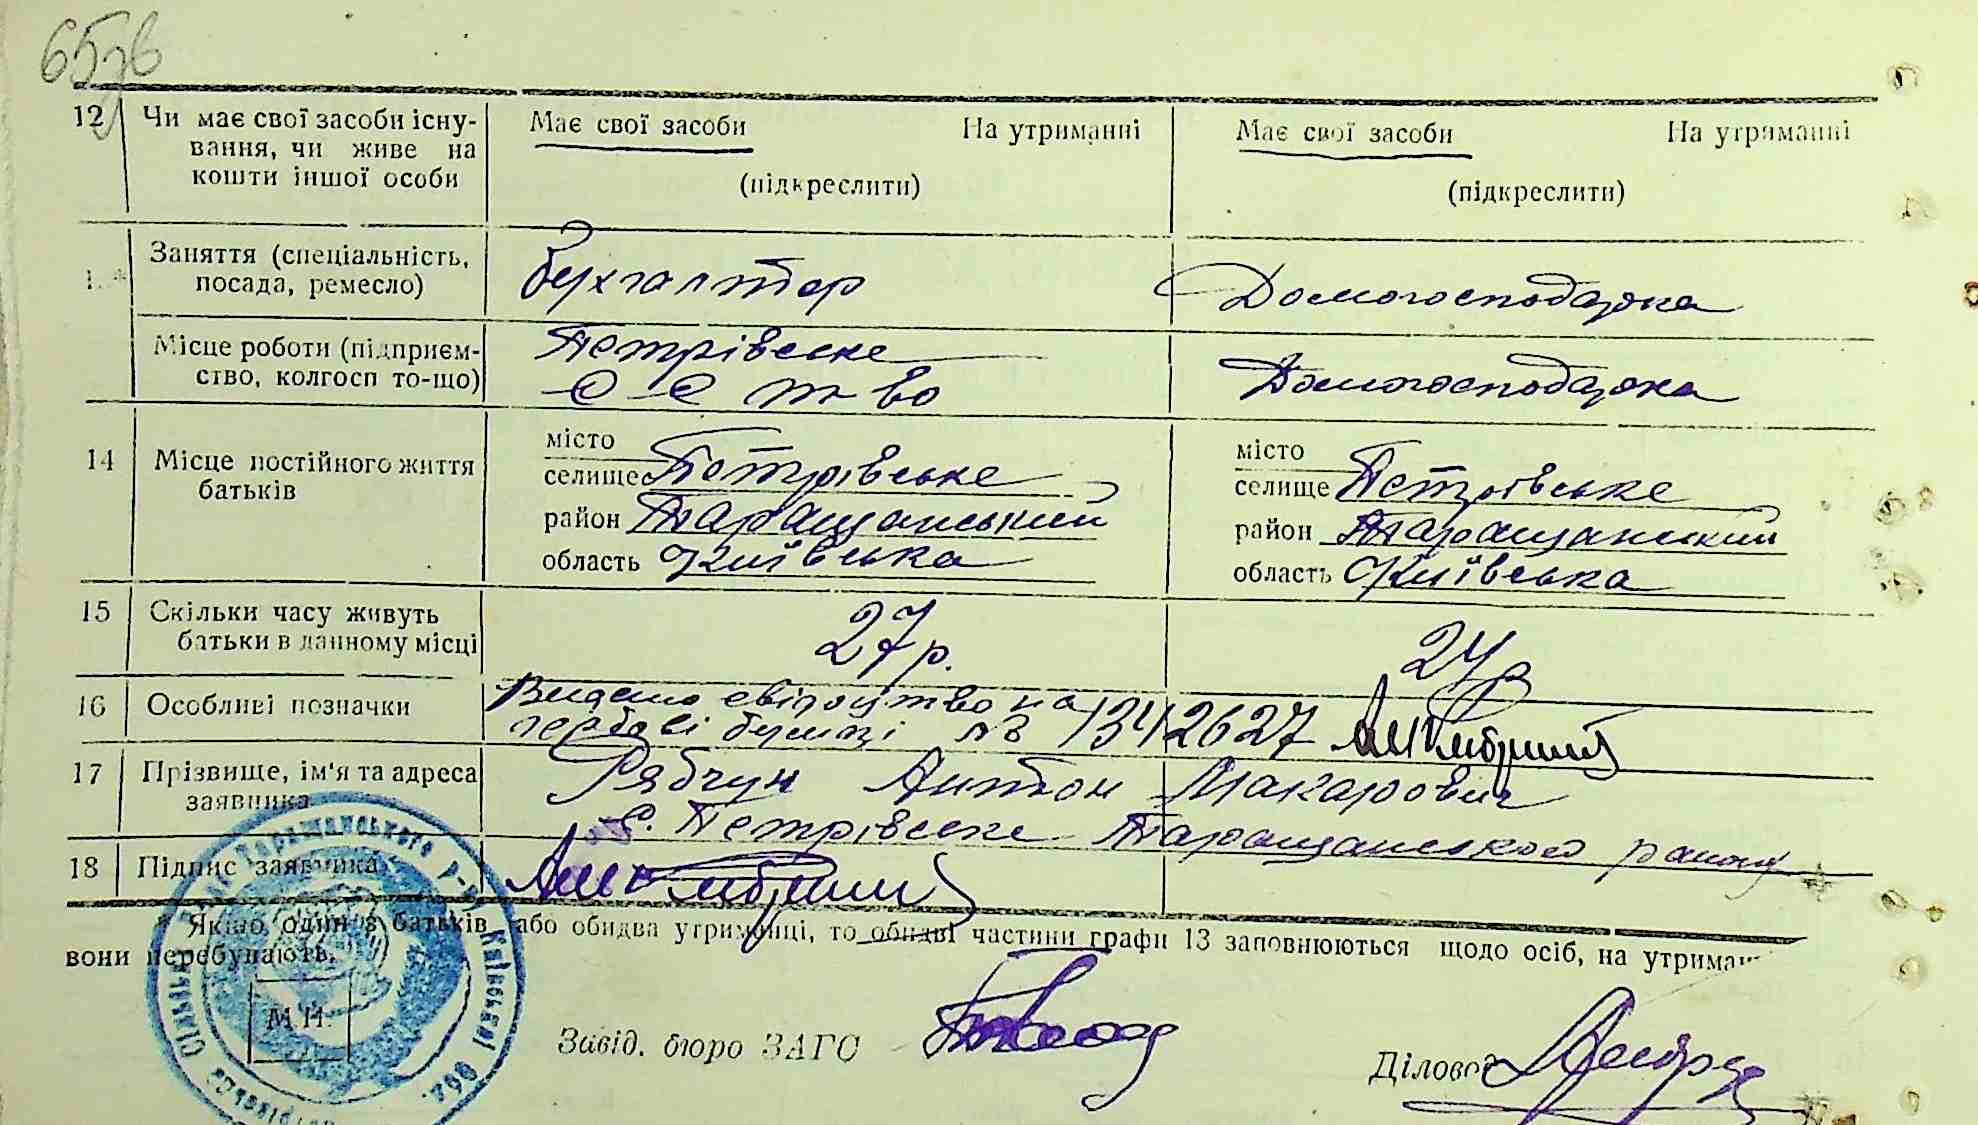 65зв
12 Чи має свої засоби існу-
вання, чи живе на
кошти іншої особи
Має свої засоби На утриманні
(підкреслити)
Має свої засоби На утриманні
(підкреслити)
Заняття (спеціальність,
посада, ремесло)
Бухгалтер
Домогосподарка
Місце роботи (підприєм-
ство, колгосп то-що)
Петрівське
С С т во
Домогосподарка
14 Місце постійного життя
батьків
місто
селище Петрівське
район Таращанський
область Київська
місто
селище Петрівське
район Таращанський
область Київська
15 Скільки часу живуть
батьки в данному місці
27 р.
24 р
16 Особливі позначки
Видано свідоцтво на
гербові бумазі № 1342627
17 Прізвище, ім'я та адреса
заявника
Рябчун Антон Макарович
с. Петрівське Таращанського району
18 Підпис заявника
* Якщо один з батьків або обидва утриманці, то обидві частини графи 13 заповнюються щодо осіб, на утриман
вони перебувають.
М.П.
Завід. бюро ЗАГС
Діловод
Таращанського р-ну Київської обл.